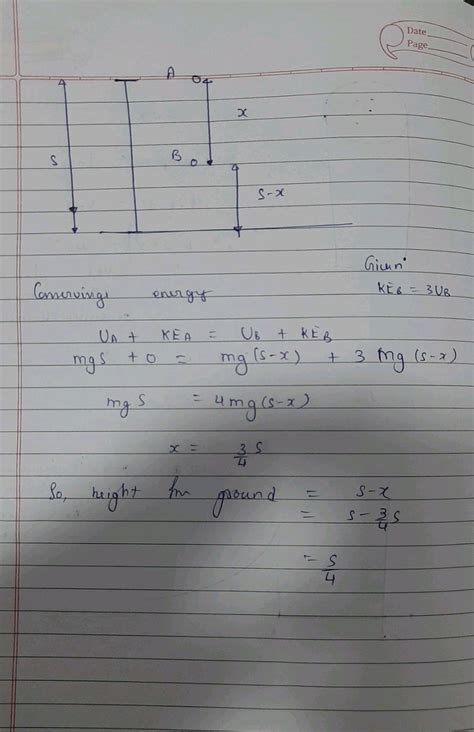 Date
Page
A
x
S
B
S-x
Given
KE_B = 3U_B
Conserving energy
U_A + KE_A = U_B + KE_B
mgS + 0 = mg(s-x) + 3 mg(s-x)
mgS = 4mg(s-x)
x = 3/4 S
So, height fm ground = s-x
= s - 3/4 s
= s/4